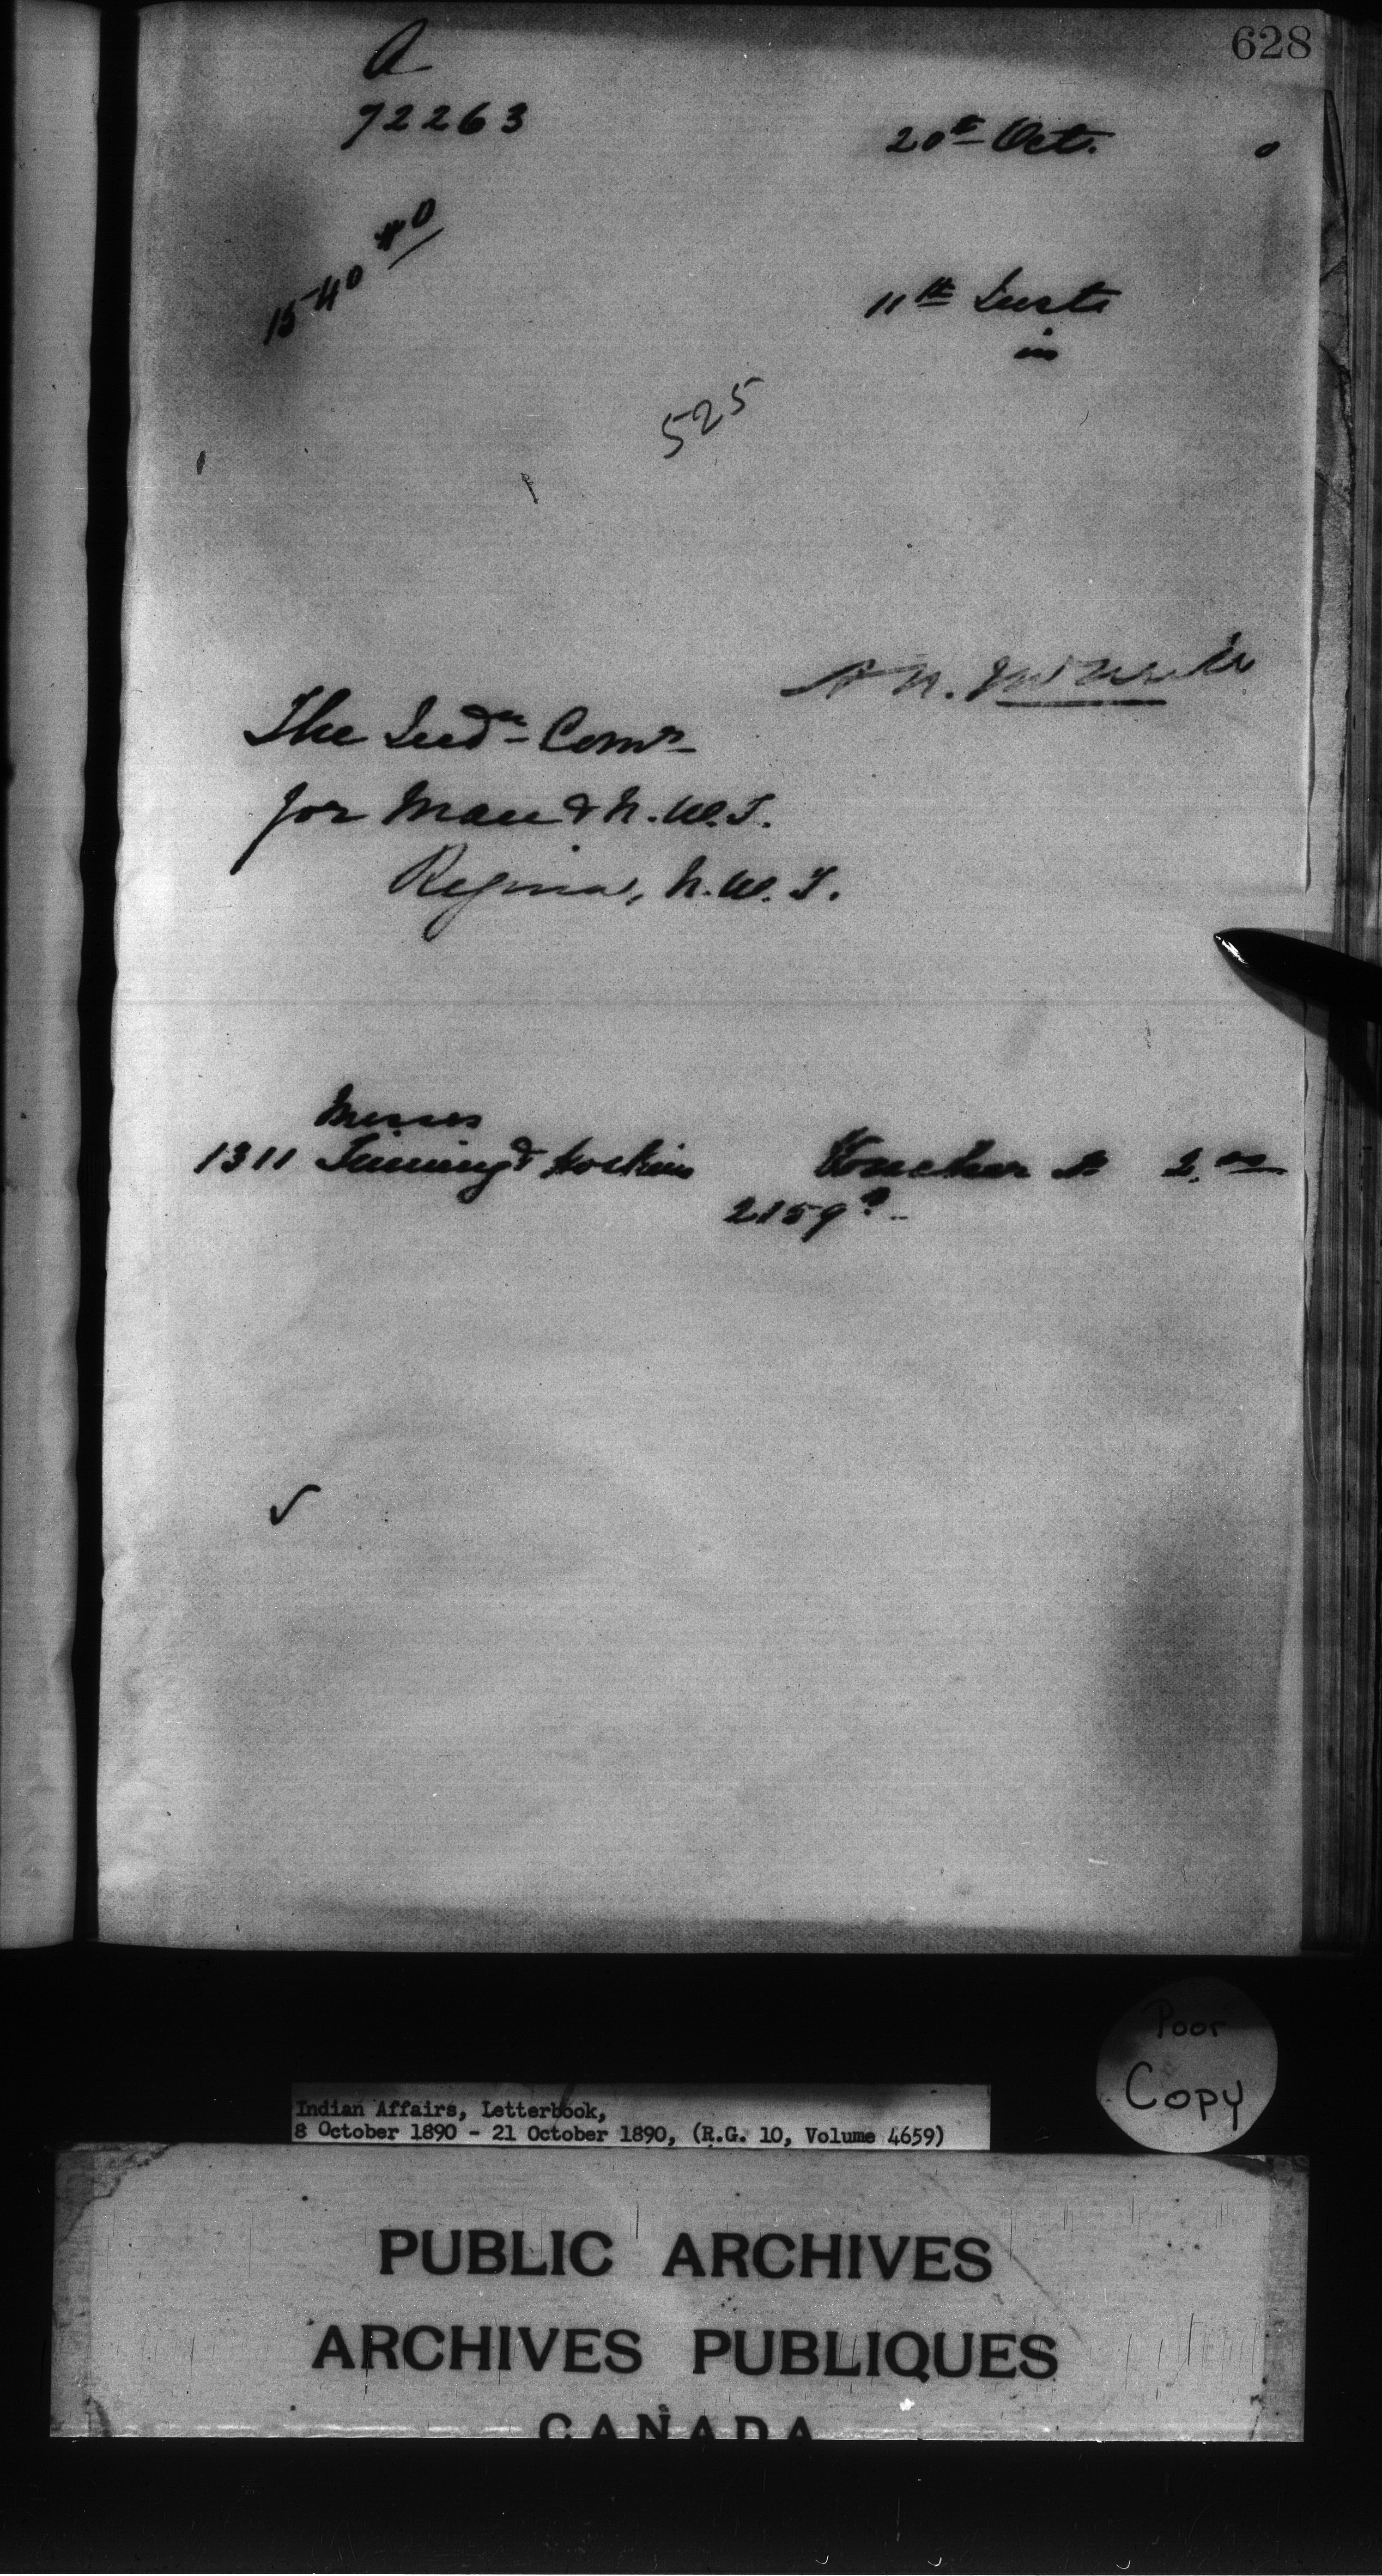 628
A
72263
20th Oct. 0
1540 40
11th Inst
in
525
The Indn Comr
for Man & N.W.T.
Regina, N.W.T.
Messrs
1311 & Hoskins Voucher 2.00
2159
Poor
Copy
Indian Affairs, Letterbook,
8 October 1890 - 21 October 1890, (R.G. 10, Volume 4659)
PUBLIC ARCHIVES
ARCHIVES PUBLIQUES
CANADA